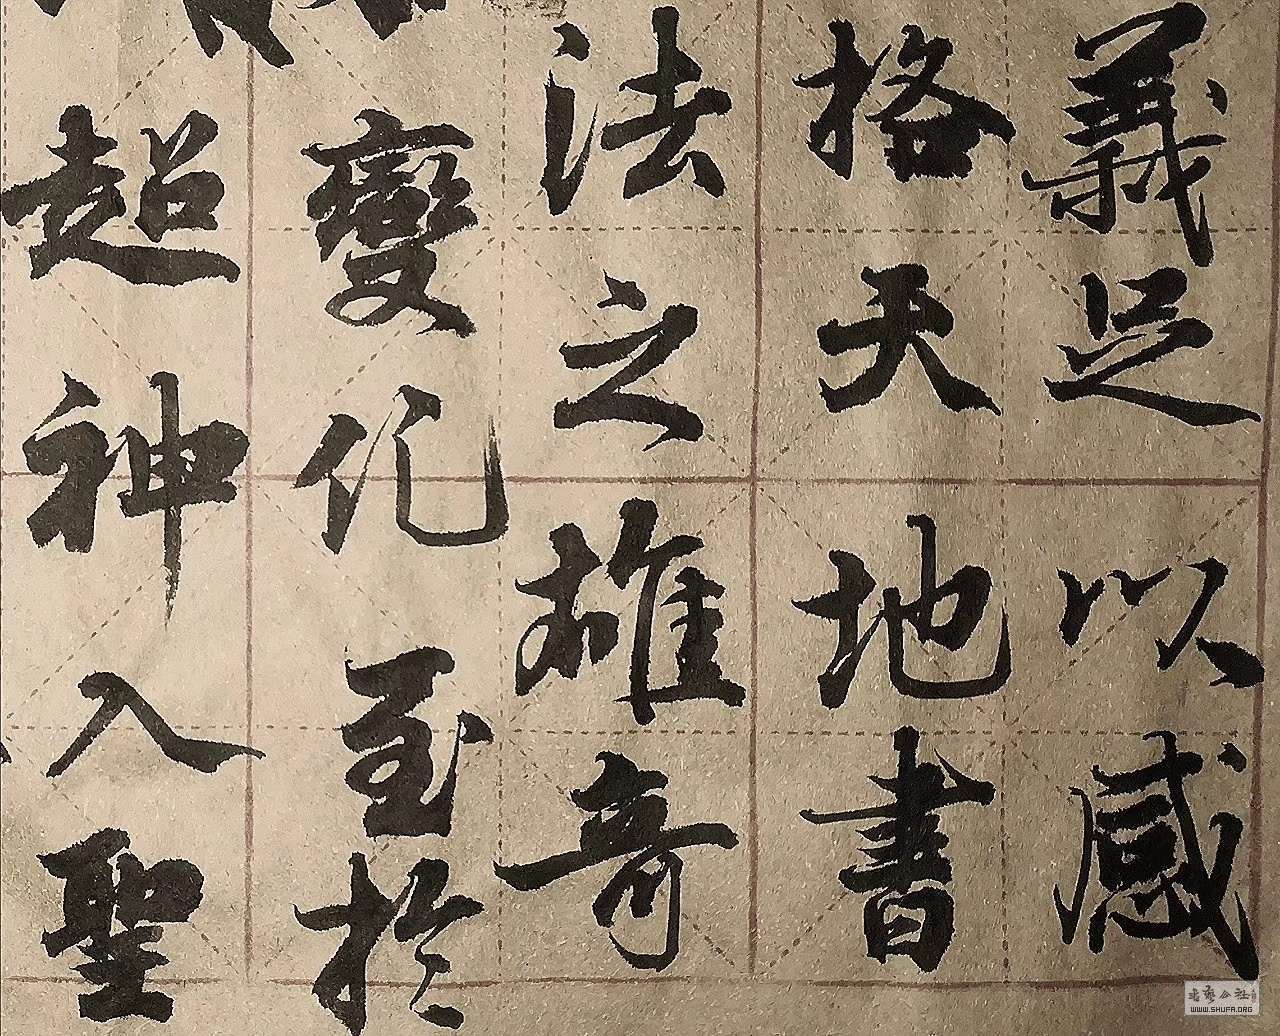 義足以感
格天地書
法之雄奇
變化至於
超神入聖
WWW.SHUFA.ORG